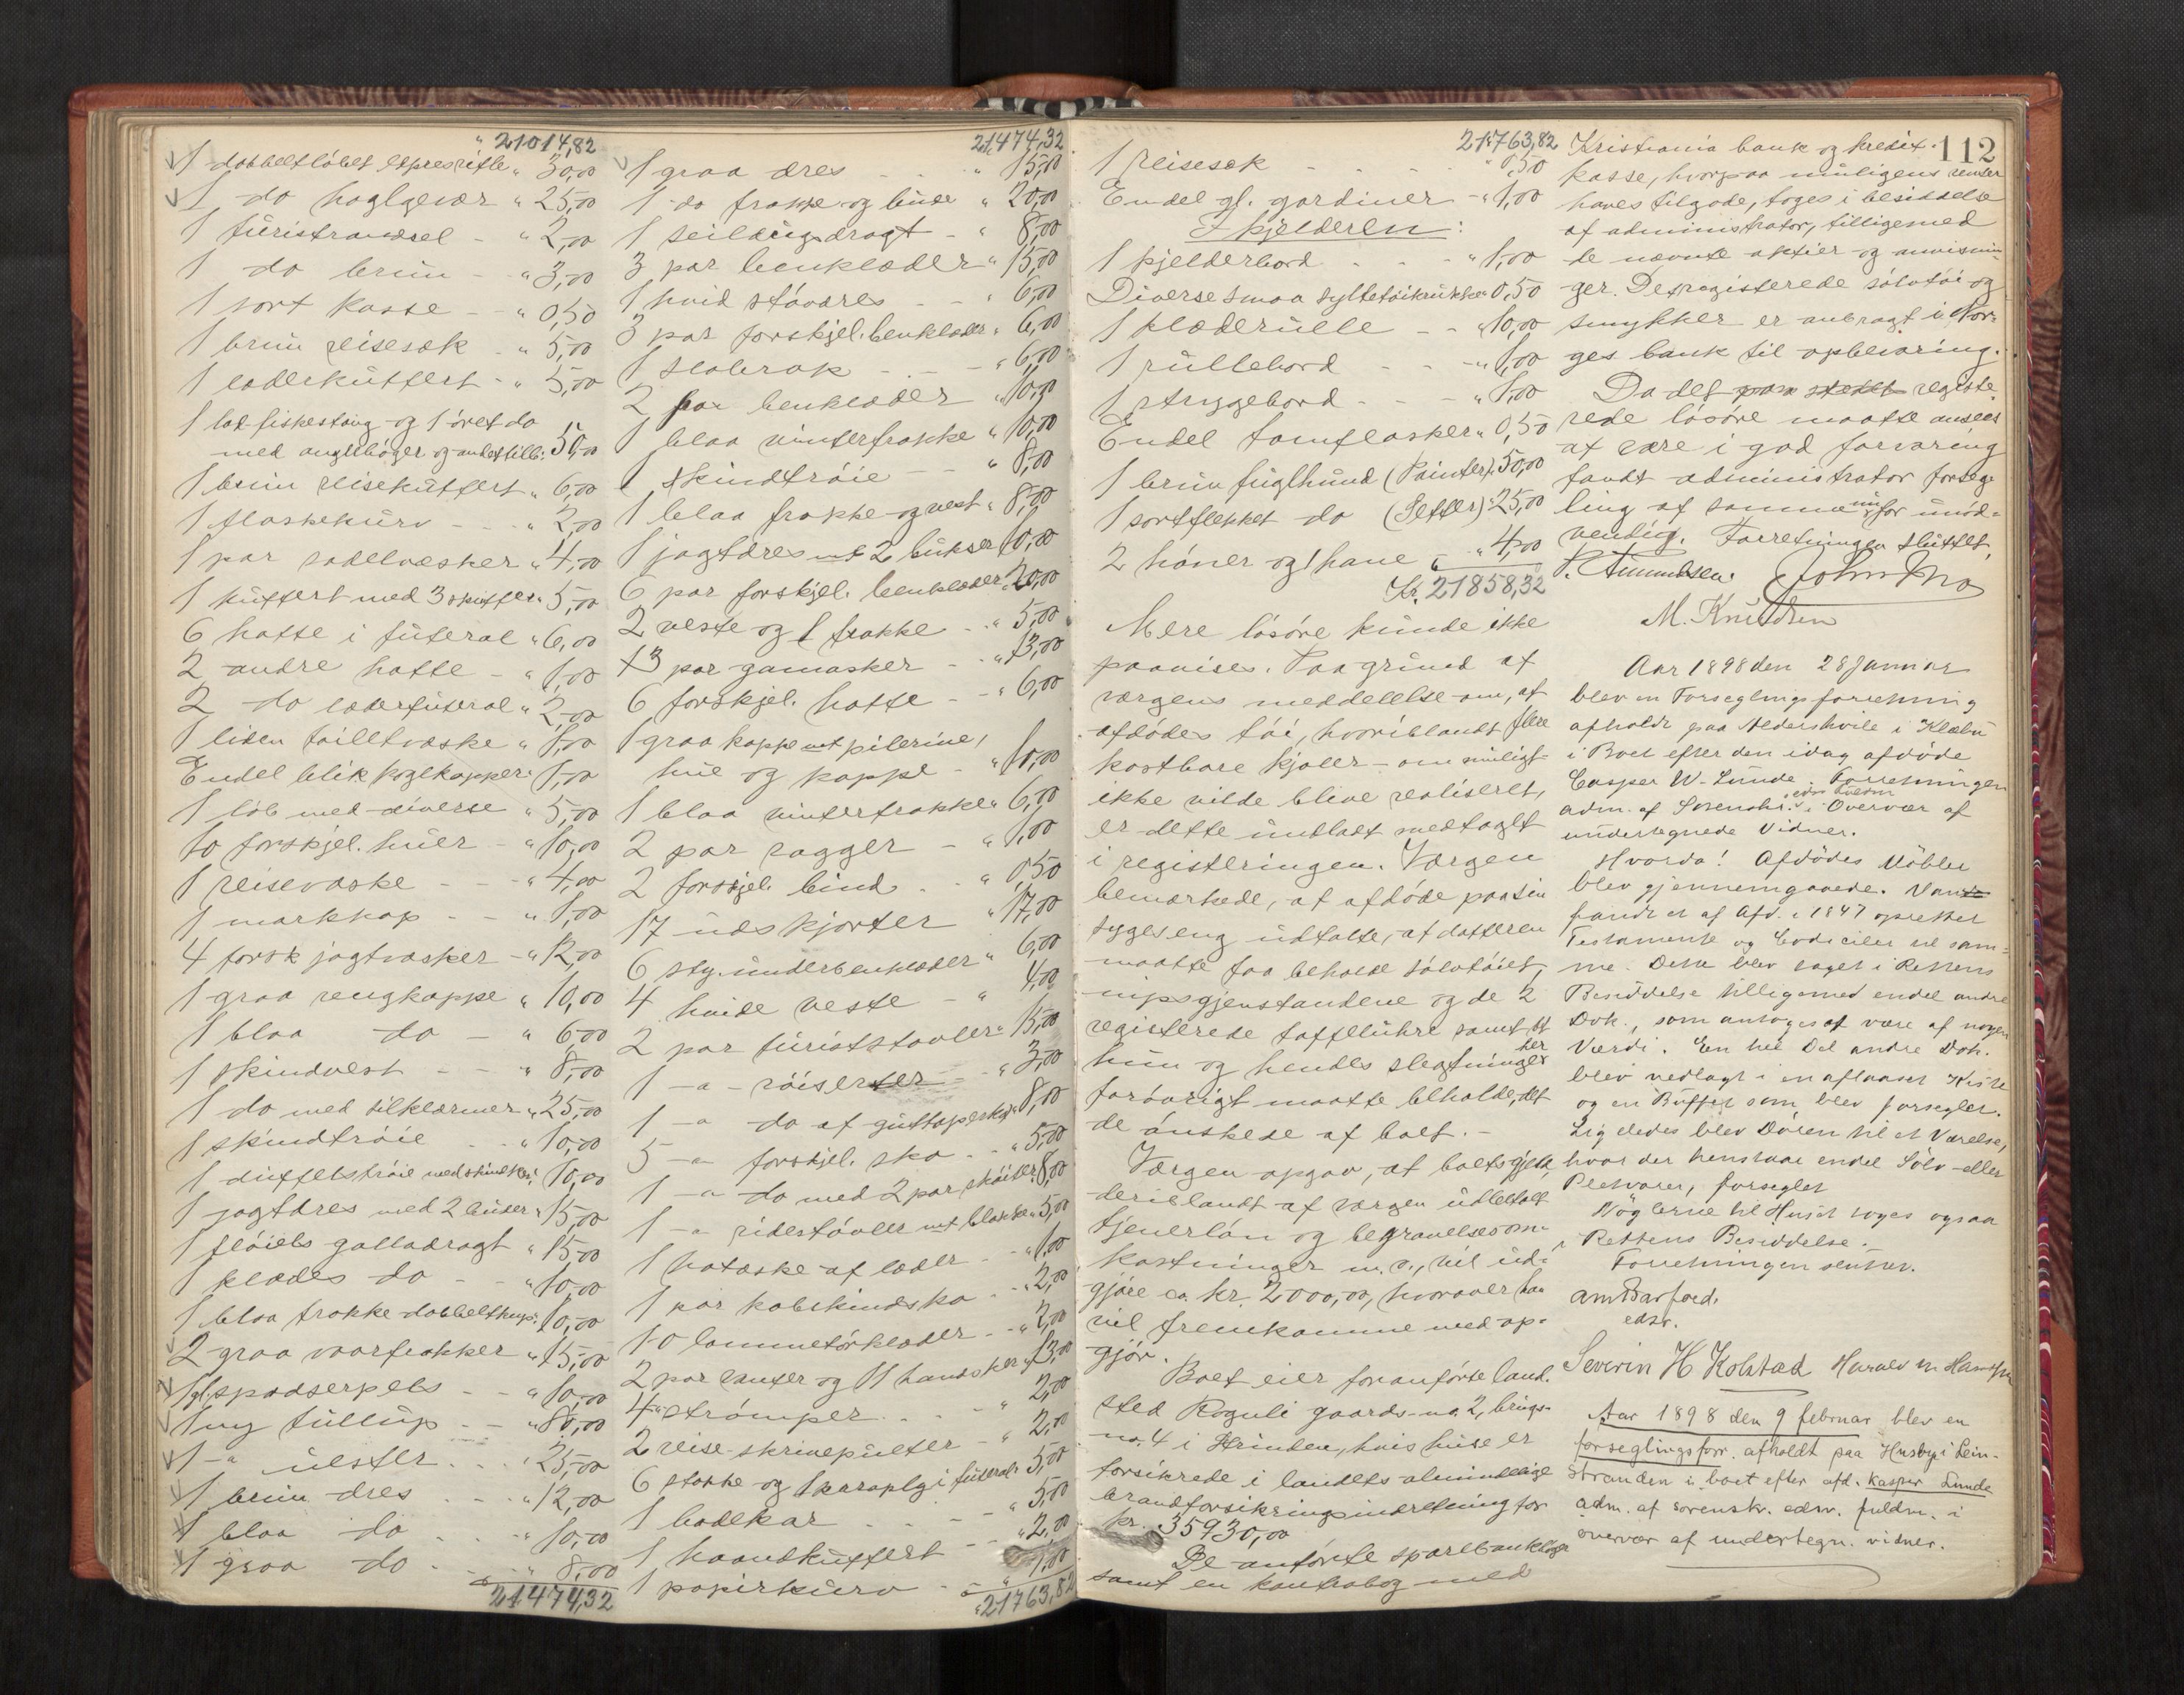 " 21014,82
1 dobbeltløbet expresrifle " 30,00
1 do haglgevær " 25,00
1 turistrandsel - " 2,00
1 do brun - " 3,00
1 sort kasse - - " 0,50
1 brun reisesæk - " 5,00
1 læderkuffert - " 5,00
1 lakfiskestang og 1 øret do
med anglebøger og andet tilb: 50,00
1 brun reisekuffert " 6,00
1 flaskekurv - - " 2,00
1 par sadelvæsker " 4,00
1 kuffert med 3 skuffer " 5,00
6 hatte i futeral " 6,00
2 andre hatte - " 1,00
2 do læderfuteral " 2,00
1 liden toiletvæske " 1,00
Endel blik kogekopper " 1,00
1 løb med diverse " 5,00
10 forskjel. huer - " 10,00
1 reisevæske - - " 4,00
1 markkop - - " 1,00
4 forsk jagtvæsker - " 12,00
1 graa regnkappe " 10,00
1 blaa do - " 6,00
1 skindvest - - " 8,00
1 do med silkeærmer " 25,00
1 skindtrøie - - " 10,00
1 duffelstrøie med skindker " 10,00
1 jagtdres med 2 buxer " 15,00
1 fløiels galladragt " 15,00
1 klædes do - - " 10,00
1 blaa frakke dobbeltknap. " 10,00
2 graa vaarfrakker " 15,00
1 gl. spadserpels - - " 10,00
1 ny tullup - - " 80,00
1 -"- ulster - - " 25,00
1 brun dres - - " 12,00
1 blaa do - - " 10,00
1 graa do - - " 8,00
21474,32
21474,32
1 graa dres - - " 15,00
1 do frakke og buxe " 20,00
1 seildugsdragt - " 8,00
3 par benklæder " 15,00
1 hvid støvdres - - " 6,00
3 par forskjel. benklæder " 6,00
1 slobrok - - - " 6,00
2 par benklæder " 10,00
1 blaa vinterfrakke " 10,00
1 skindtrøie - - " 8,00
1 blaa frakke og vest " 8,00
1 jagtdres mt 2 bukser 10,00
6 par forskjel. benklæder " 20,00
2 veste og 1 frakke - " 5,00
13 par gamasker - - " 13,00
6 forskjel. hatte - - " 6,00
1 graa kappe mt pilerine,
hue og kappe - " 10,00
1 blaa vinterfrakke " 6,00
2 par ragger - " 1,00
2 forskjel. bind - - " 0,50
17 udskjorter " 17,00
6 sty. underbenklæder " 6,00
4 hvide veste - " 4,00
2 par turiststøvler " 15,00
1 -"- røiserter - - " 3,00
1 -"- do af guttaperka " 8,00
5 -"- forskjel. sko - - " 5,00
1 -"- do med 2 par skøiter " 8,00
1 -"- ridestøvler mt blokke " 5,00
1 hatæske af læder - - " 1,00
1 par kobbskindsko - - " 2,00
10 lommetørklæder - - " 2,00
2 par vanter og 11 handsker " 13,00
4 -"- strømper - - - " 2,00
2 reise-skrivepulter - " 2,00
6 stokke og 1 paraply i futeral " 5,00
1 badekar - - - " 5,00
1 haandkuffert - - " 2,00
1 papirkurv - - " 1,00
" 21763,82
21763,82
1 reisesæk - - - " 0,50
Endel gl. gardiner - " 1,00
I kjelderen:
1 kjelderbord - - - " 1,00
Diverse smaa syltetøikrukker 0,50
1 klæderulle - - " 10,00
1 rullebord - - - " 1,00
1 strygebord - - - " 1,00
Endel tomflasker " 0,50
1 brun fuglhund (Pointer) " 50,00
1 sortflekket do (Setter) " 25,00
2 høner og 1 hane - " 4,00
Kr. 21858,32
Mere løsøre kunde ikke
paavises. Paa grund af
værgens meddelelse om, at
afdødes tøi, hvoriblandt flere
kostbare kjoler - om muligt
ikke vilde blive realiseret,
er dette undladt medtaget
i registreringen. Værgen
bemærkede, at afdøde paa sin
sygeseng udtalte, at datteren
maatte faa beholde sølvtøiet,
nipsgjenstandene og de 2
registerede taffeluhre samt at
hun og hendes slegtninger
forøvrigt maatte beholde, det
de ønskede af boet. -
Værgen opgav, at boets gjeld,
deriblandt af værgen udbetalt
tjenerløn og begravelsesom-
kostninger m. v., vil ud-
gjøre ca. kr. 2000,00, hvorover han
vil fremkomme med op-
gjør.
Boet eier foranførte land-
sted Roguli gaards-no. 2, brugs-
no. 4 i Strinden, hvis huse er
forsikrede i landets almindelige
brandforsikringsindretning for
kr. 35930,00
De anførte sparebankbøger
samt en kontrabog med
112
Kristiania bank og kredit-
kasse, hvorpaa muligens renter
haves tilgode, toges i besiddelse
af administrator, tilligemed
de nævnte aktier og anvisnin-
ger. Det registerede sølvtøi og
smykker er anbragt i Nor-
ges bank til opbevaring.
Da det paa stedet registe-
rede løsøre maatte ansees
at være i god forvaring
fandt administrator forseg-
ling af samme nu for unød-
vendig. Forretningen sluttet.
P. Amundsen. John Mo
M. Knudsen
Aar 1898 den 28 Januar
blev en Forseglingsforretning
afholdt paa Alderskvile i Klæbu
i Boet efter den idag afdøde
Casper W. Lunde. Forretningen
adm. af Sorenskr. edsv Fuldm i Overvær af
undertegnede Vidner.
Hvorda! Afdødes Møbler
blev gjennemgaaede. Man
fandt et af Afd. i 1847 oprettet
Testamente og Codiciler til sam-
me. Dette blev taget i Rettens
Besiddelse tilligemed endel andre
Dok., som antoges at være af nogen
Værdi. En hel Del andre Dok.
blev nedlagt i en aflaaset Kiste
og en Buffet som blev forseglet.
Ligeledes blev Døren til et Værelse,
hvor der henstaar endel Sølv- eller
Pletvarer, forseglet
Nøglerne til Huset toges ogsaa
i Rettens Besiddelse.
Forretningen sluttet.
Am Barfoed.
edsv.
Severin H Kolstad Harald M Hansen
Aar 1898 den 9 februar blev en
forseglingsforr. afholdt paa Husby i Lein-
stranden i boet efter afd. Kasper Lunde
adm. af sorensk. edsv. fuldm. i
overvær af undertegn. vidner.